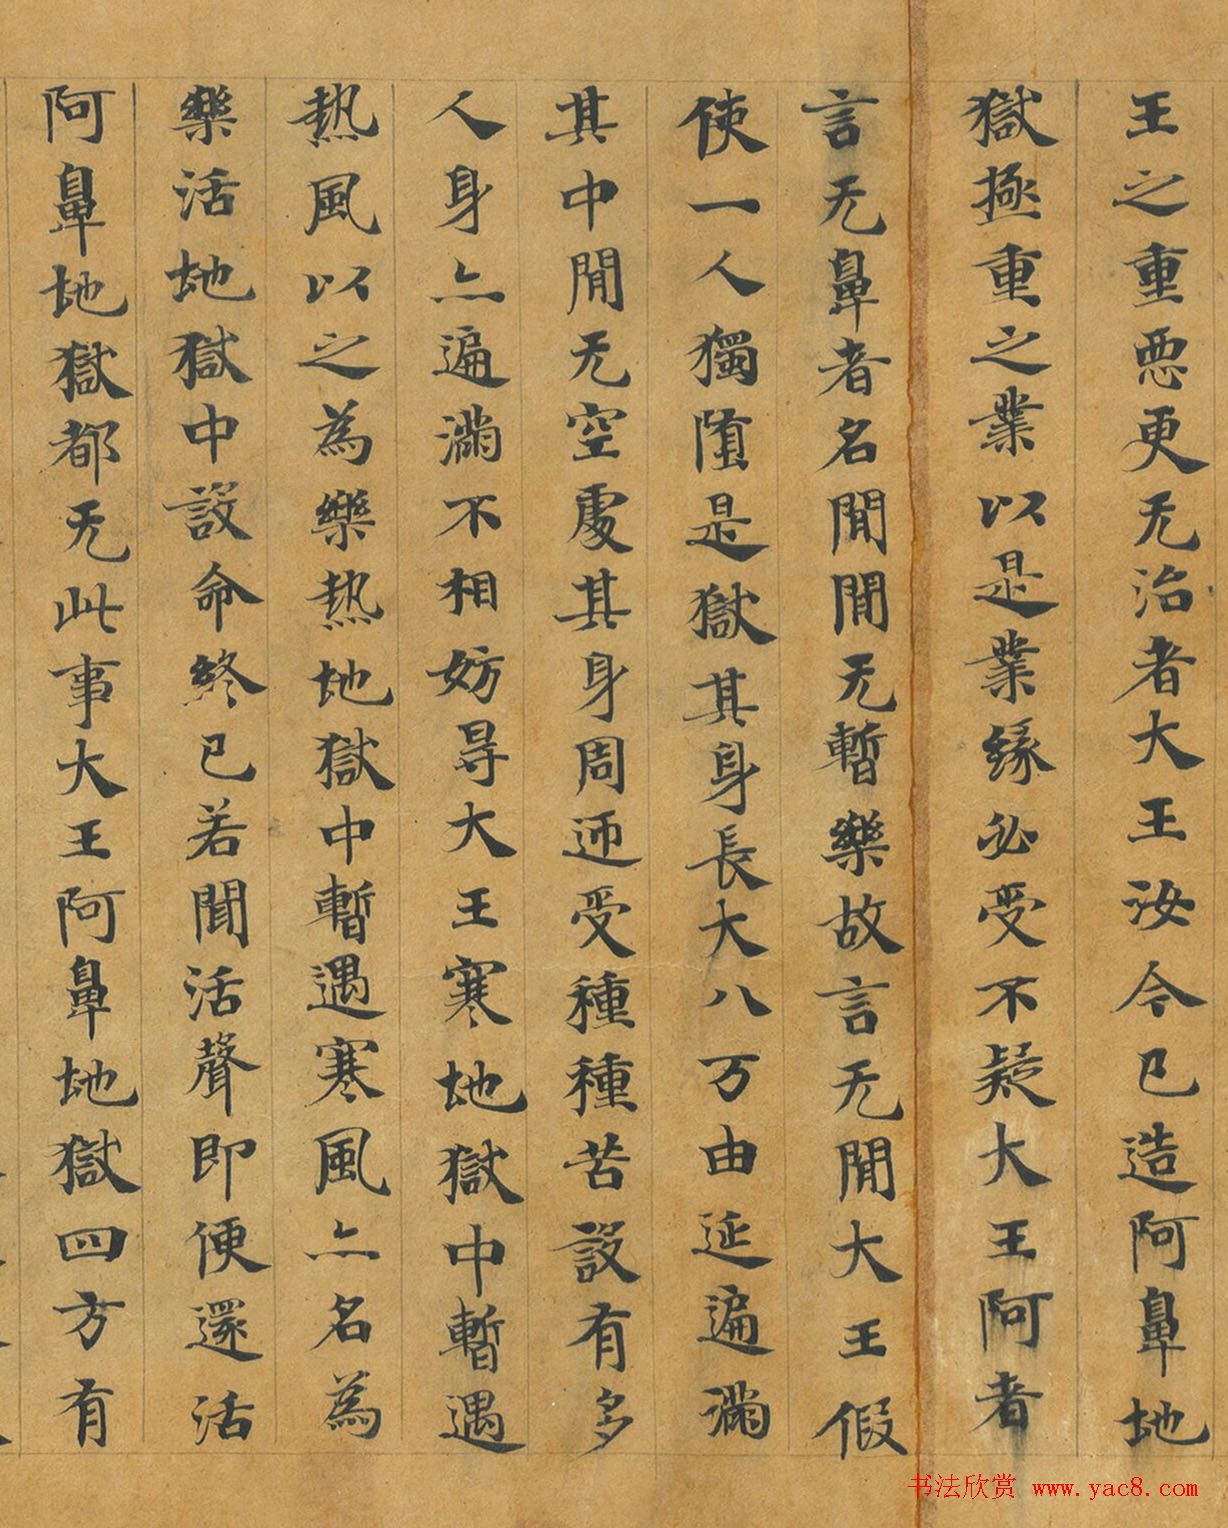 王之重惡更无治者大王汝今已造阿鼻地
獄極重之業以是業緣必受不疑大王阿者
言无鼻者名間間无暫樂故言无間大王假
使一人獨墮是獄其身長大八万由延遍滿
其中間无空處其身周迊受種種苦設有多
人身亦遍滿不相妨㝵大王寒地獄中暫遇
熱風以之為樂熱地獄中暫遇寒風亦名為
樂活地獄中設命終已若聞活聲即便還活
阿鼻地獄都无此事大王阿鼻地獄四方有
书法欣赏 www.yac8.com